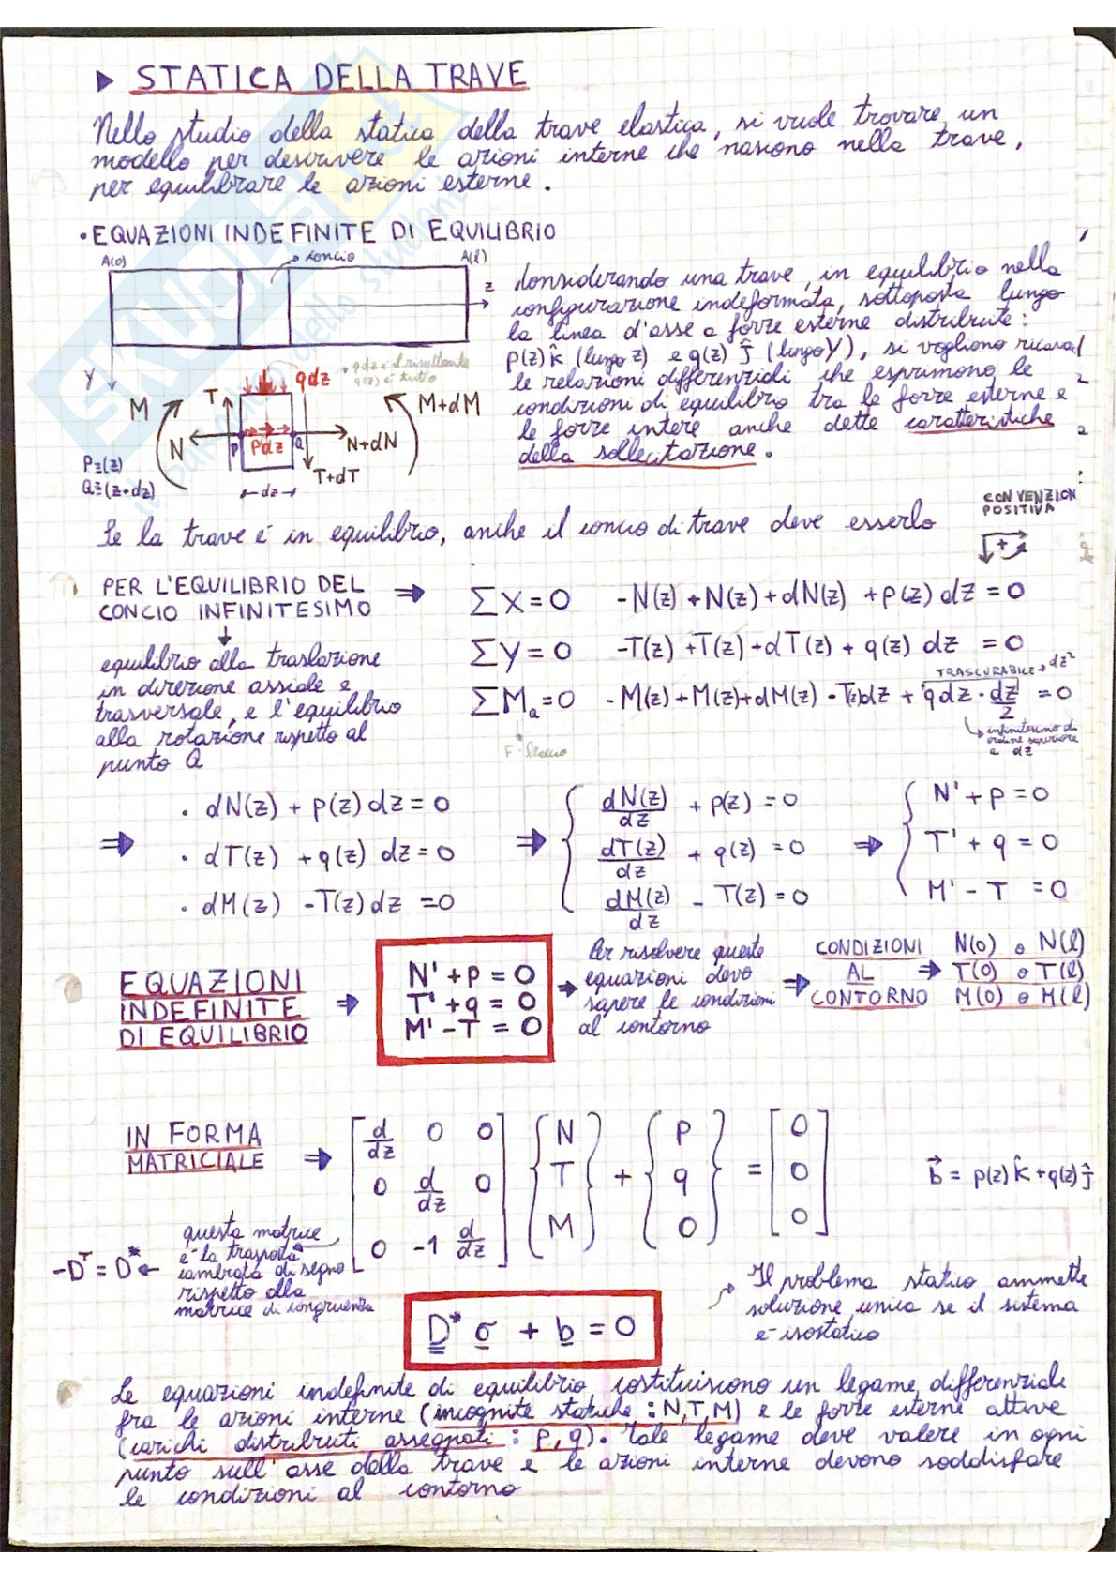 ▶ STATICA DELLA TRAVE
Nello studio della statica della trave elastica, si vuole trovare un
modello per descrivere le azioni interne che nascono nella trave,
per equilibrare le azioni esterne.
• EQUAZIONI INDEFINITE DI EQUILIBRIO
A(0) concio A(l)
z
y
Considerando una trave, in equilibrio nella
configurazione indeformata, sottoposta lungo
la linea d'asse a forze esterne distribuite:
p(z) k̂ (lungo z) e q(z) ĵ (lungo Y), si vogliono ricavar
le relazioni differenziali che esprimono le
condizioni di equilibrio tra le forze esterne e
le forze intere anche dette caratteristiche
della sollecitazione.
qdz • qdz è il risultante
M T M+dM
N P pdz Q N+dN
T+dT
P≡(z)
Q≡(z+dz)
dz
Se la trave è in equilibrio, anche il concio di trave deve esserlo
CONVENZION
POSITIVA
+
PER L'EQUILIBRIO DEL
CONCIO INFINITESIMO ⇒
equilibrio alla traslazione
in direzione assiale e
trasversale, e l'equilibrio
alla rotazione rispetto al
punto Q
ΣX = 0 -N(z) + N(z) + dN(z) + p(z) dz = 0
ΣY = 0 -T(z) + T(z) + dT(z) + q(z) dz = 0
TRASCURABILE, dz²
ΣMa = 0 - M(z) + M(z) + dM(z) - T(z)dz + qdz · dz/2 = 0
infinitesimo di
ordine superiore
a dz
⇒ • dN(z) + p(z) dz = 0
• dT(z) + q(z) dz = 0
• dM(z) - T(z) dz = 0
⇒ { dN(z)/dz + p(z) = 0
dT(z)/dz + q(z) = 0
dM(z)/dz - T(z) = 0
⇒ { N' + p = 0
T' + q = 0
M' - T = 0
EQUAZIONI
INDEFINITE
DI EQUILIBRIO ⇒
N' + p = 0
T' + q = 0
M' - T = 0
→ Per risolvere queste
equazioni devo
sapere le condizioni
al contorno
⇒ CONDIZIONI
AL
CONTORNO
⇒ N(0) o N(l)
T(0) o T(l)
M(0) o M(l)
IN FORMA
MATRICIALE ⇒
[ d/dz 0 0 ] { N } + { p } = [ 0 ]
[ 0 d/dz 0 ] { T } + { q } = [ 0 ]
[ 0 -1 d/dz ] { M } + { 0 } = [ 0 ]
b⃗ = p(z) k̂ + q(z) ĵ
-Dᵀ = D*
questa matrice
è la trasposta
cambiata di segno
rispetto alla
matrice di congruenza
D* σ + b = 0
Il problema statico ammette
soluzione unica se il sistema
è isostatico
Le equazioni indefinite di equilibrio, costituiscono un legame differenziale
fra le azioni interne (incognite statiche : N,T,M) e le forze esterne attive
(carichi distribuiti assegnati : p, q). Tale legame deve valere in ogni
punto sull'asse della trave e le azioni interne devono soddisfare
le condizioni al contorno